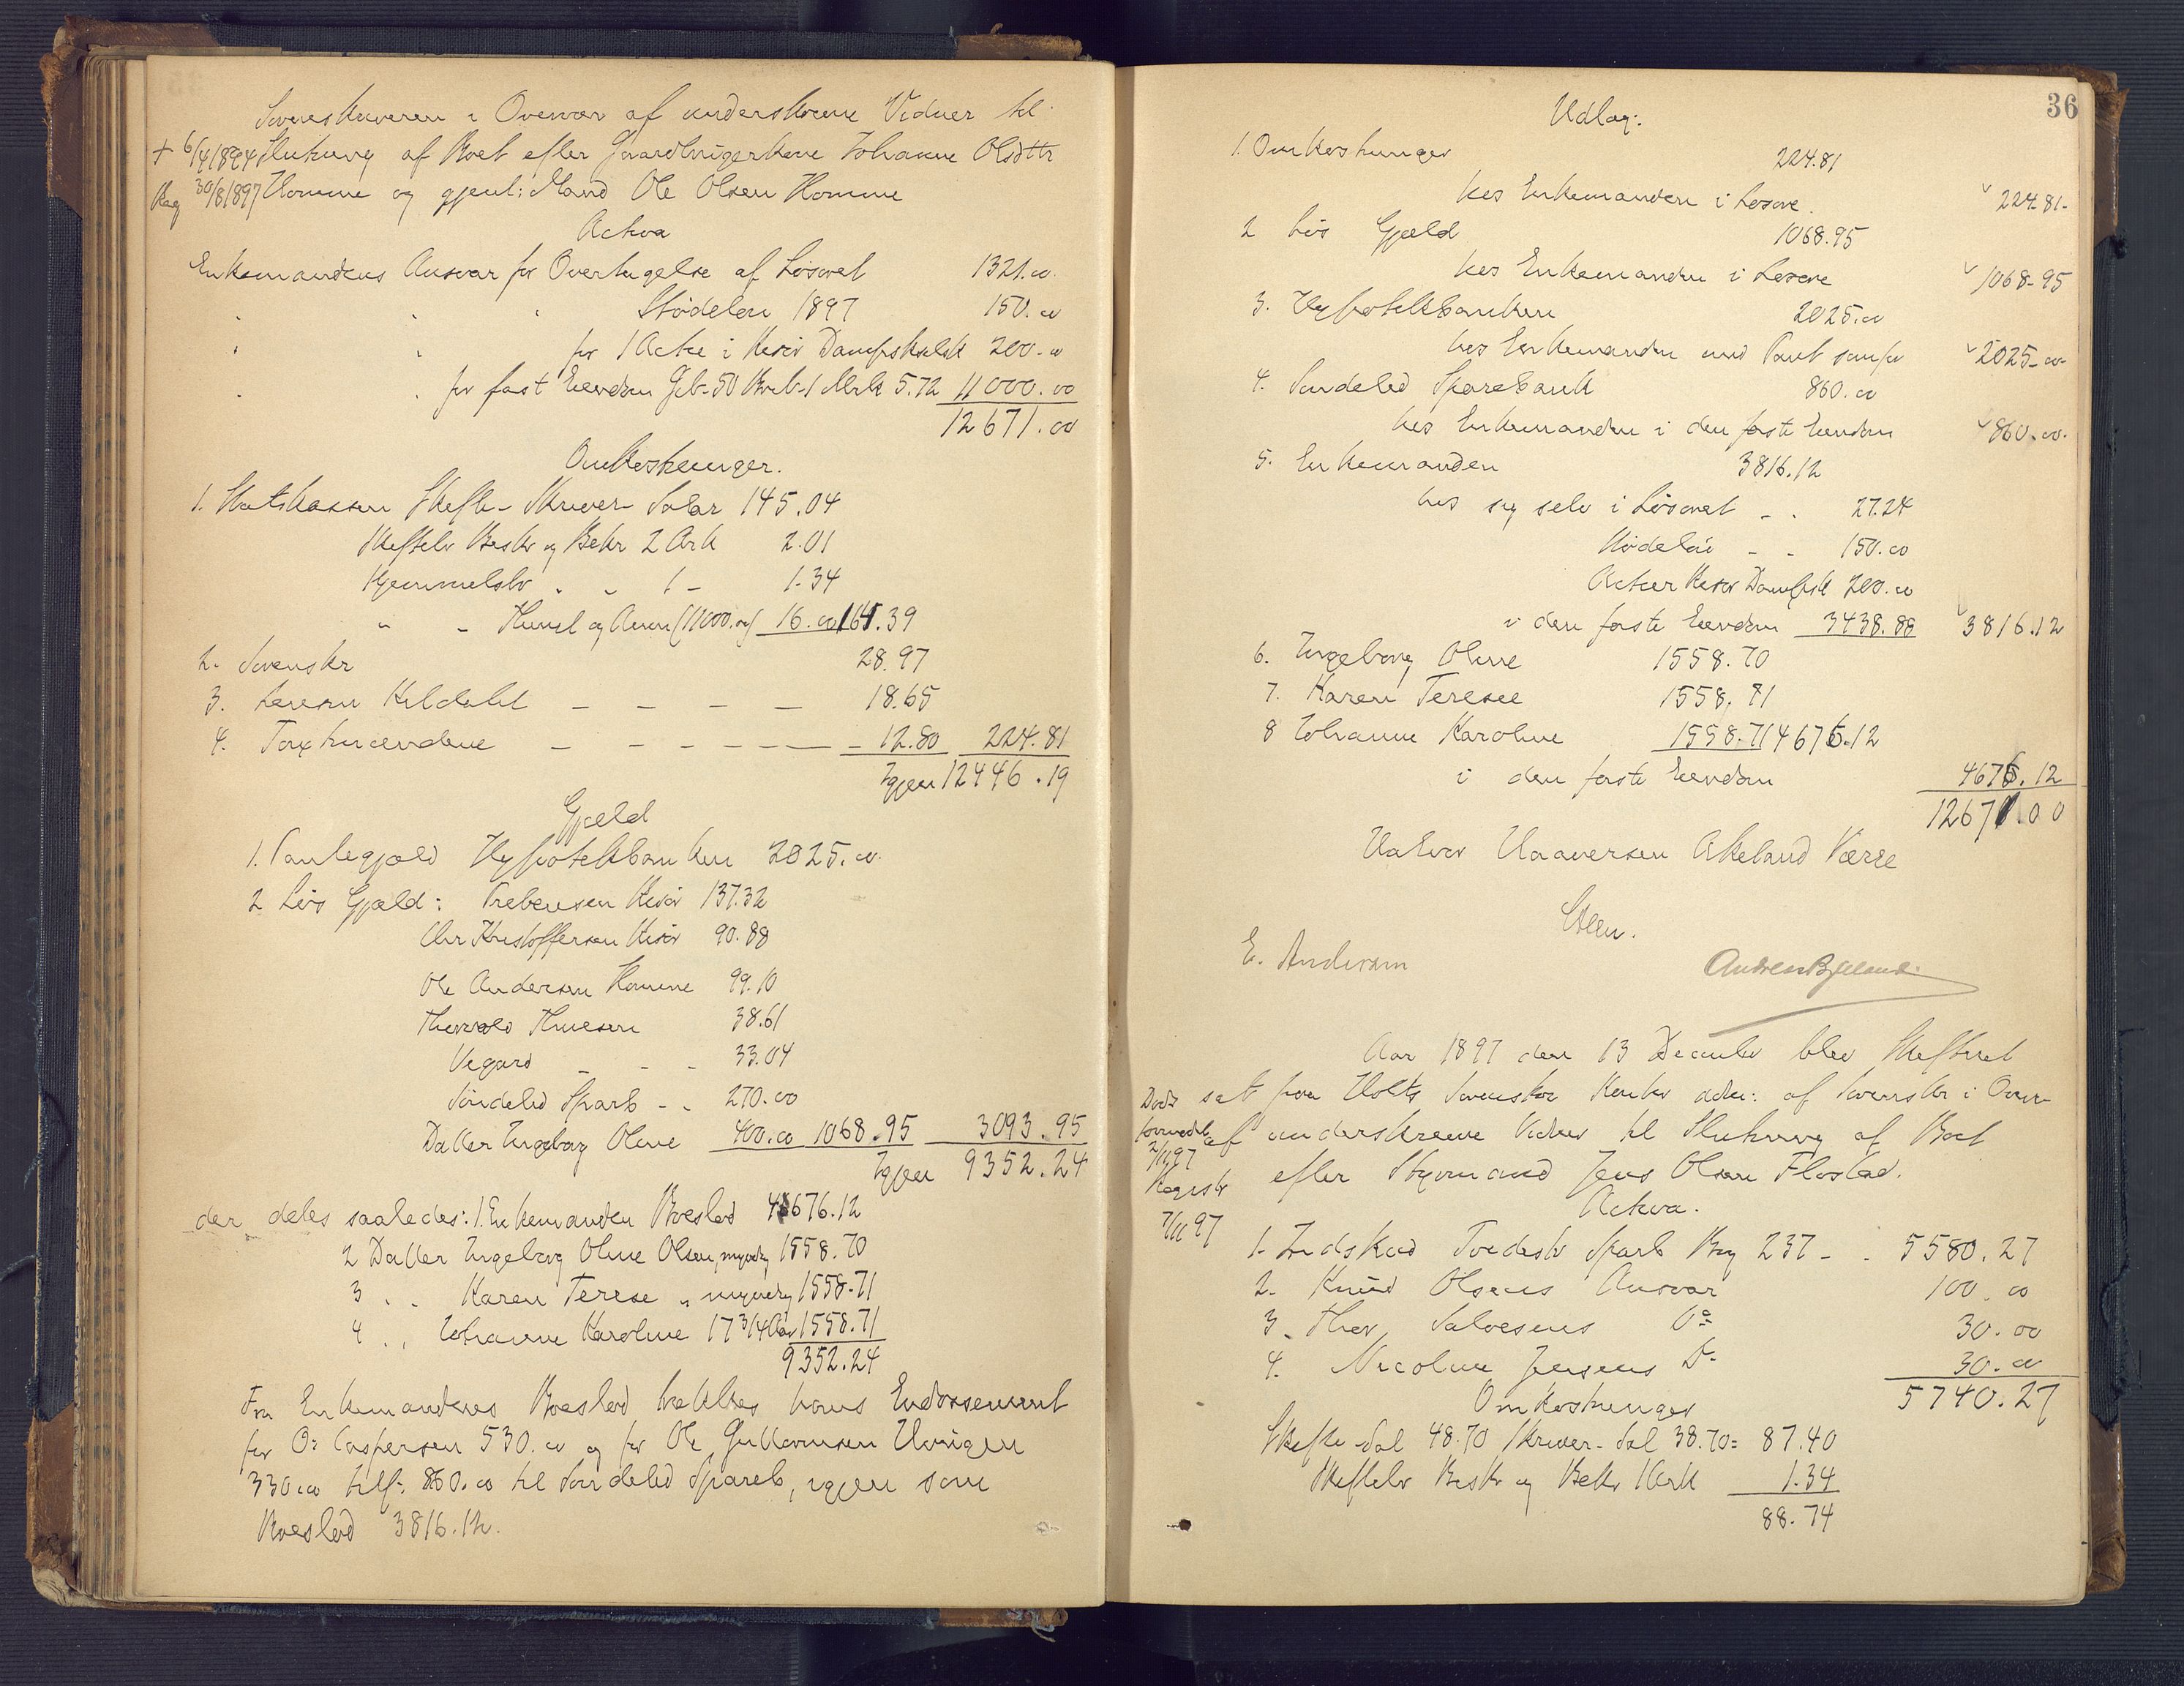 Sorenskriveren i Overvær af underskrevne Vidner til
+ 6/4 1894 Slutning af Boet efter Gaardbrugerkone Johanne Olsdttr
Reg 30/8 1897 Homme og gjenl: Mand Ole Olsen Homme
Activa
Enkemandens Ansvar for Overtagelse af Løsøret 1321.00
" " " Stødelen 1897 150.00
" " for 1 Actie i Risør Dampskselsk 200.00
" " for fast Eiendom Gb. 50 Bnk. 1 Mrk 5.72 11000.00
12671.00
Omkostninger.
1. Statskassen Skifte- Skriver- Salar 145.04
Skiftebr Beskr og Bekr 2 Ark 2.01
Hjemmelsbr " " 1 - 1.34
" - Thingl og Anm (11000.00) 16.00 164.39
2. Sorenskr 28.97
3. Lensm Kildahl — — — — 18.65
4. Taxtmændene — — — — — — 12.80 224.81
Igjen 12446.19
Gjæld
1. Pantegjæld Hypotekbanken 2025.00
2 Løs Gjæld: Prebensen Risør 137.32
Chr Kristoffersen Risør 90.88
Ole Andersen Homme 99.10
Thorvald Thuesen 38.61
Vegard - - - 33.04
Søndeled Sparb - - 270.00
Datter Ingeborg Oline 400.00 1068.95 3093.95
Igjen 9352.24
der deles saaledes: 1. Enkemanden Boeslod 4676.12
2 Datter Ingeborg Oline Olsen, myndig 1558.70
3 " " Karen Terese " myndig 1558.71
4 " " Johanne Karoline 17 3/4 Aar 1558.71
9352.24
Fra Enkemandens Boeslod trækkes hans Endossement
for O: Caspersen 530.00 og for Ole Guttormsen Ulvigen
330.00 tils: 860.00 til Søndeled Spareb, igjen som
Boeslod 3816.12.
36
Udlag:
1. Omkostninger 224.81
hos Enkemanden i Løsøre 224.81
2 Løs Gjæld 1068.95
hos Enkemanden i Løsøre 1068.95
3. Hypotekbanken 2025.00
hos Enkemanden mod Pant som før 2025.00
4. Søndeled Sparebank 860.00
hos Enkemanden i den faste Eiendom 860.00
5. Enkemanden 3816.12
hos sig selv i Løsøret - . 27.24
Stødelen - - 150.00
Actier Risør Dampsk 200.00
i den faste Eiendom 3438.88 3816.12
6. Ingeborg Oline 1558.70
7. Karen Terese 1558.71
8 Johanne Karoline 1558.71 4676.12
i den faste Eiendom 4676.12
12671.00
Halvor Haaversen Akeland Værge
Stlln.
E. Andersen Andreas Bjelland.
Aar 1897 den 13 December blev Skifteret
Døds sat paa Holts Sorenskr Kontor adm: af Sorenskr i Over-
formedl af underskrevne Vidner til Slutning af Boet
2/11 97
Registr efter Styrmand Jens Olsen Flostad.
7/11 97 Activa.
1. Indskud Tvedestr Sparb Bog 237 - . 5580.27
2. Knud Olsens Ansvar 100.00
3. Thor Salvesens Do 30.00
4. Nicoline Jensens Do 30.00
5740.27
Omkostninger
Skifte Sal 48.70 Skriver-Sal 38.70 = 87.40
Skiftebr Beskr og Bekr 1 Ark 1.34
88.74